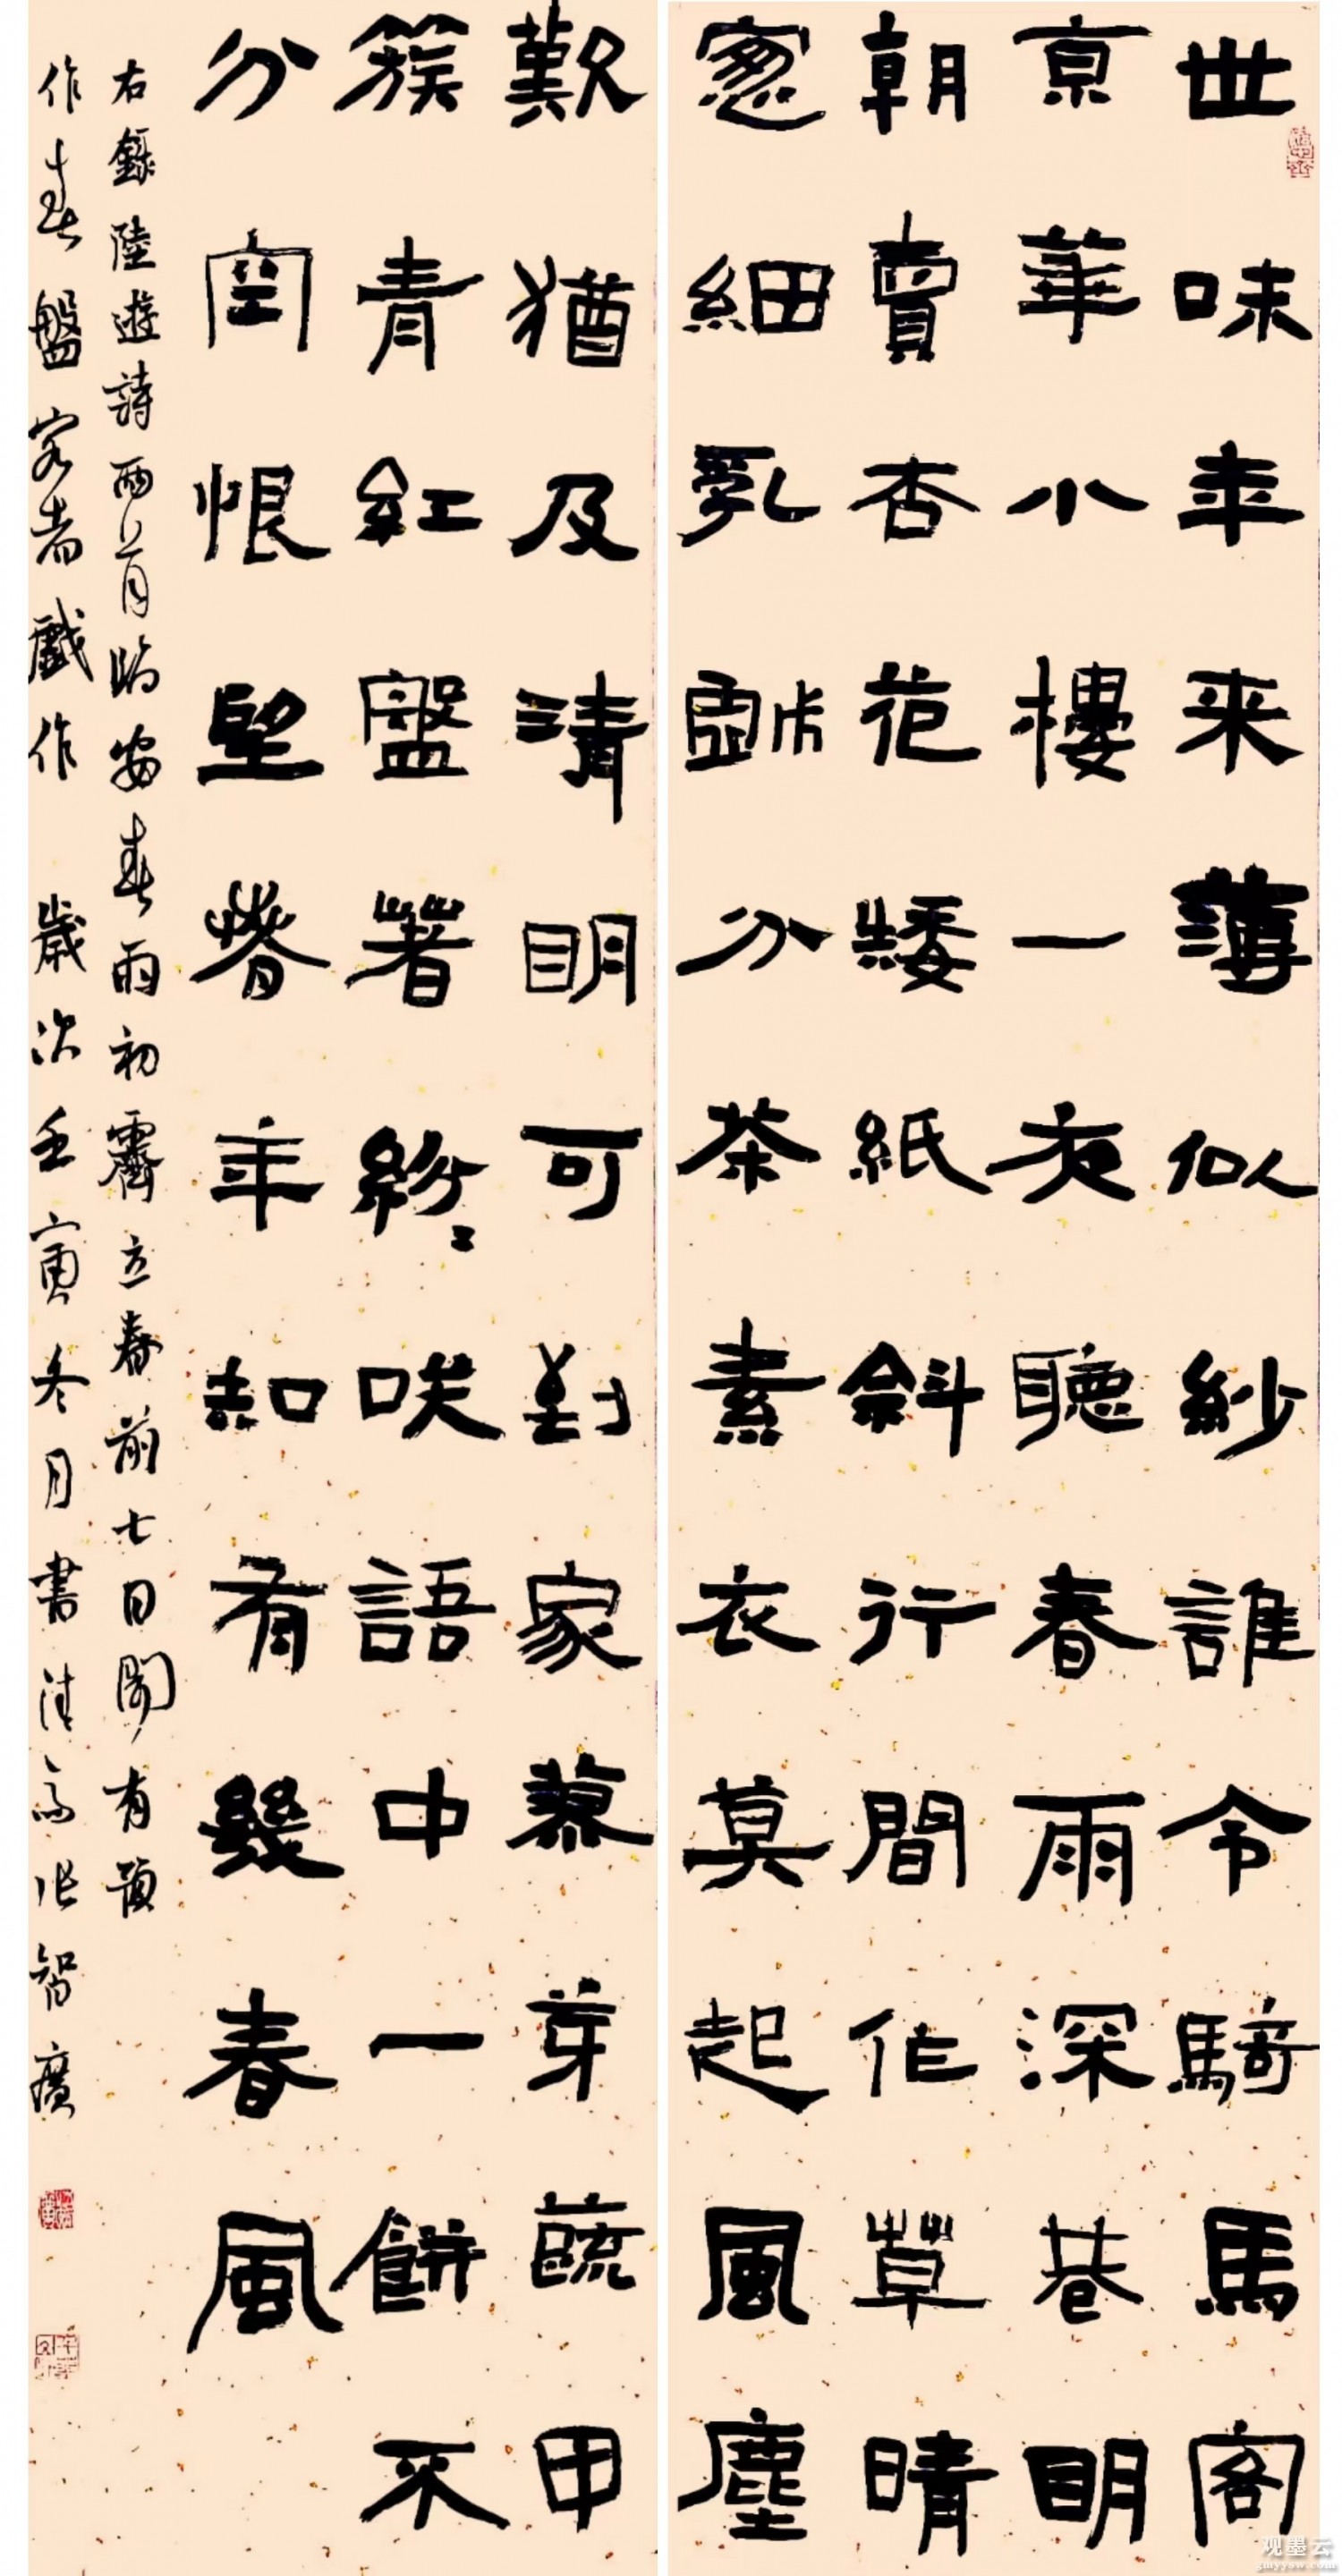 世味年来薄似紗誰令騎馬客
京華小樓一夜聽春雨深巷明
朝賣杏花矮紙斜行間作草晴
窻細乳戲分茶素衣莫起風塵
歎猶及清明可到家蓼芽蔬甲
簇青紅盤著紛〻咲語中一餅不
分空恨望暮年知有幾春風
右錄陸遊詩兩首臨安春雨初霽立春前七日聞有預
作春盤客者戲作 歲次壬寅冬月書 張智廣
观墨云
gmyyow.com